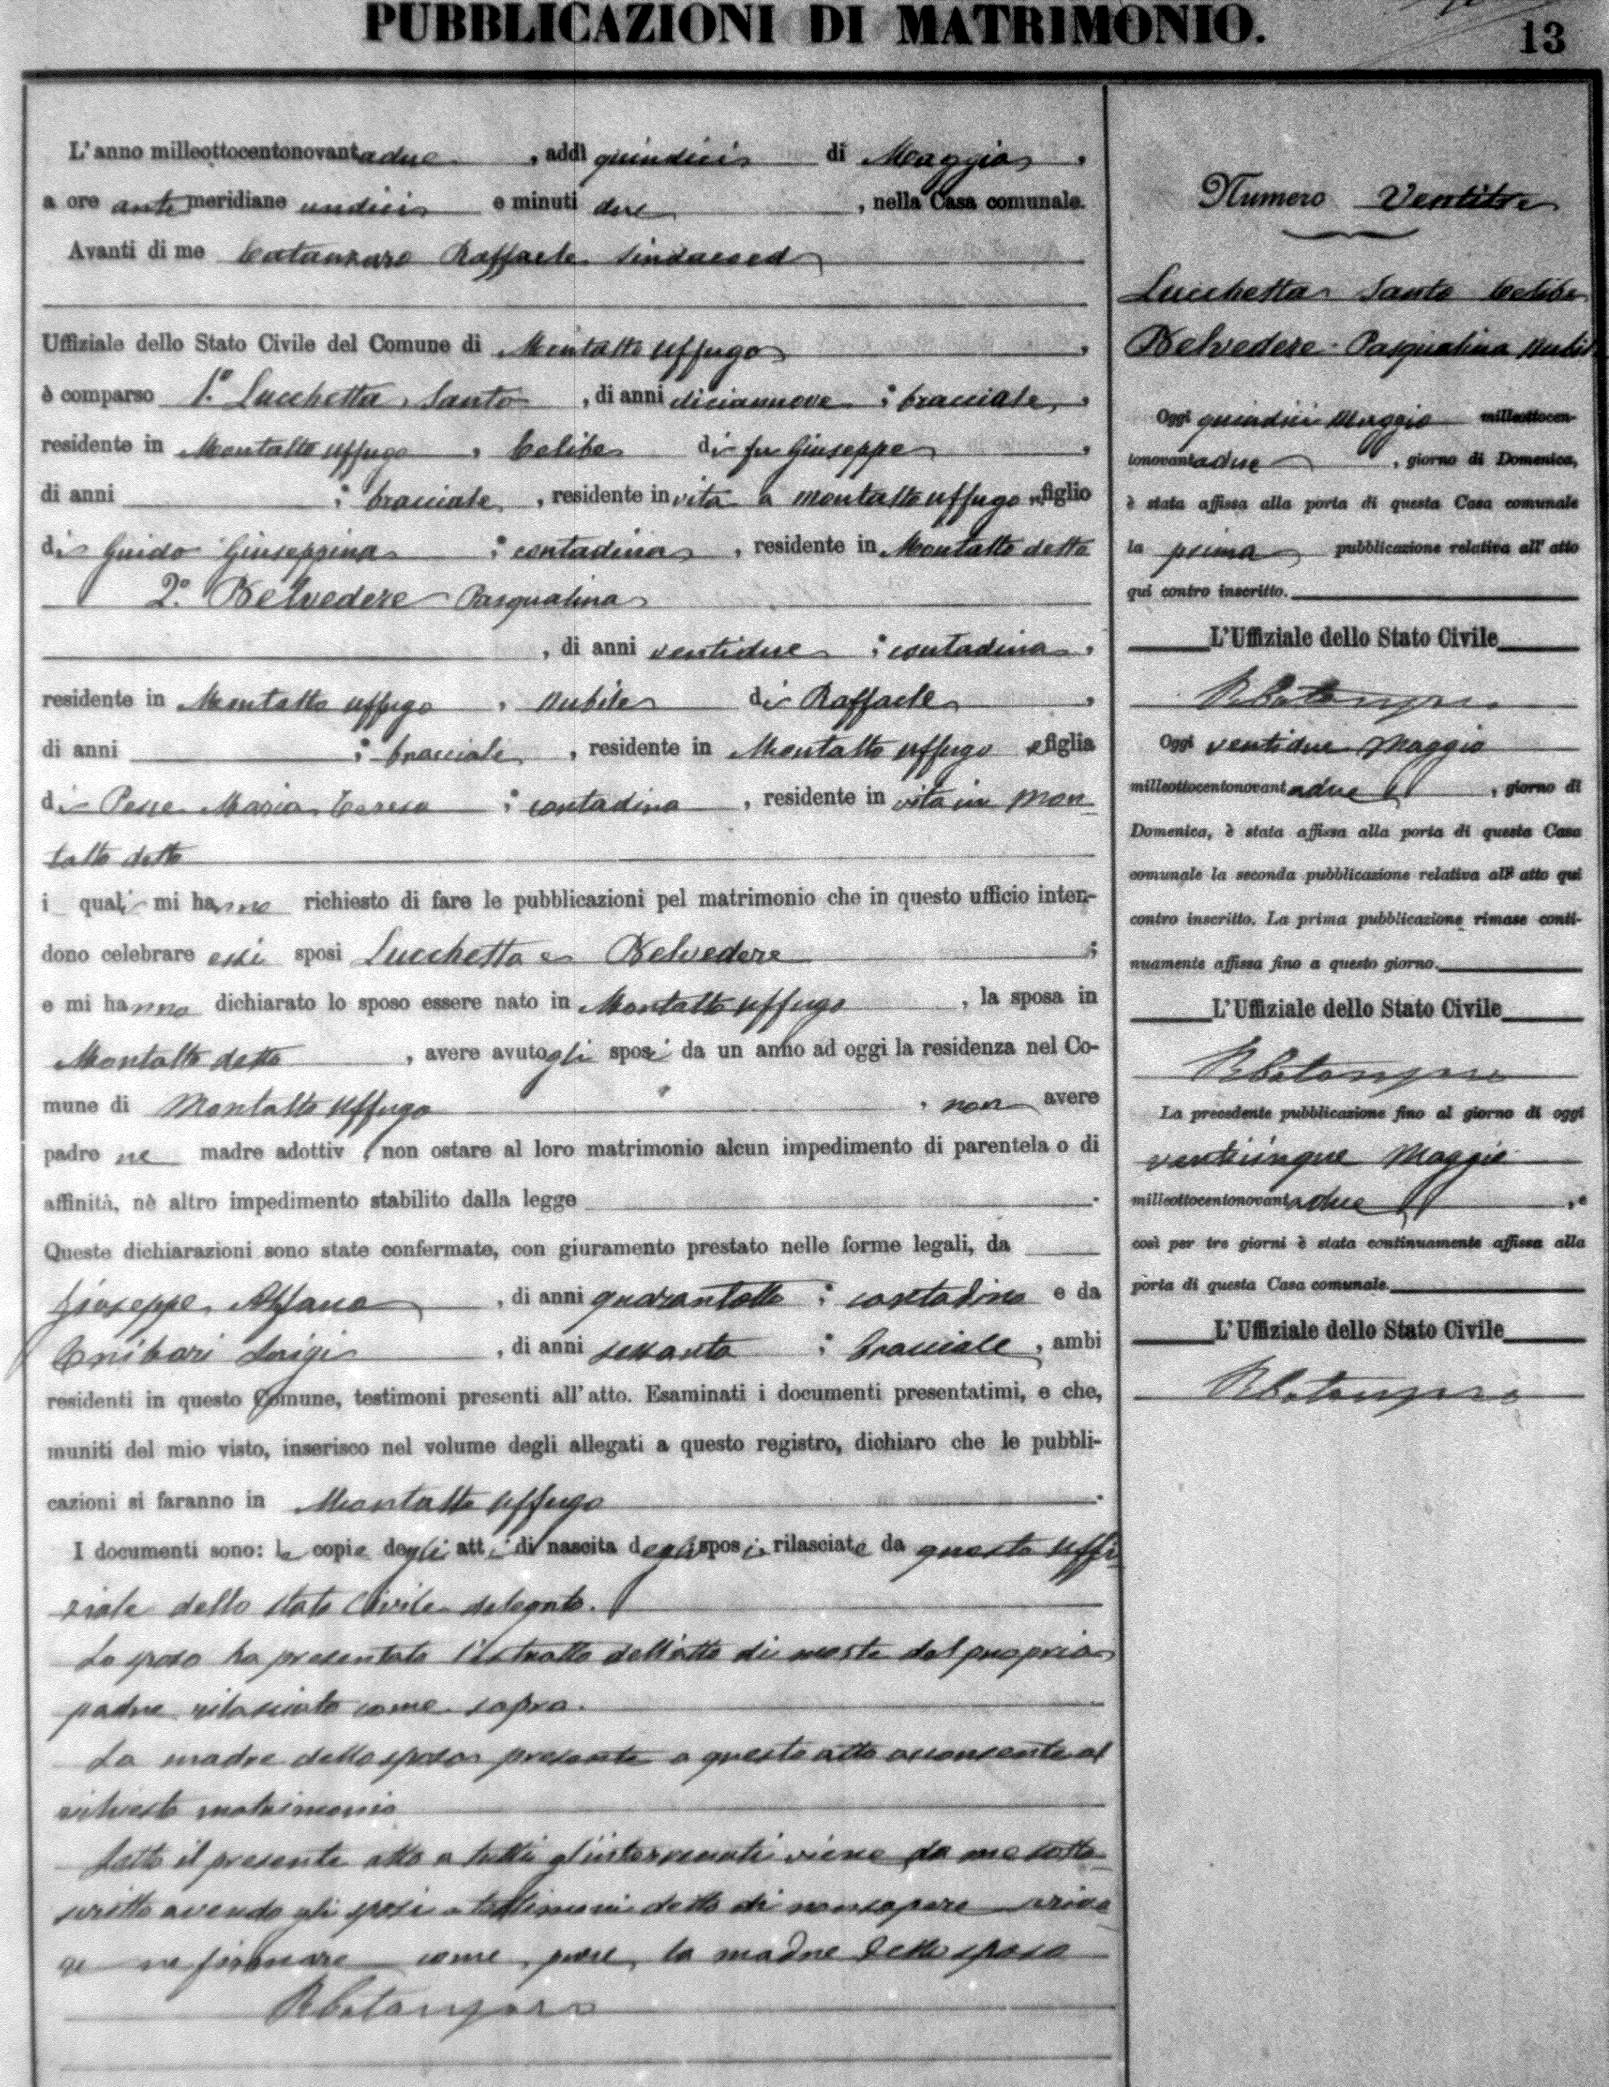 PUBBLICAZIONI DI MATRIMONIO.
13
L'anno milleottocentonovantadue, addì quindici di Maggio,
a ore antimeridiane undici e minuti due, nella Casa comunale.
Avanti di me Catanzaro Raffaele Sindaco ed
Uffiziale dello Stato Civile del Comune di Montalto Uffugo,
è comparso 1.º Lucchetta Santo, di anni diciannove; bracciale,
residente in Montalto Uffugo, Celibe di fu Giuseppe,
di anni ; bracciale, residente in vita a Montalto Uffugo e figlio
di Guido Giuseppina; contadina, residente in Montalto detto
2.º Belvedere Pasqualina
, di anni ventidue; contadina,
residente in Montalto Uffugo, nubile di Raffaele,
di anni ; bracciale, residente in Montalto Uffugo e figlia
di Maria Teresa; contadina, residente in vita in Mon-
talto detto
i quali mi hanno richiesto di fare le pubblicazioni pel matrimonio che in questo ufficio inten-
dono celebrare essi sposi Lucchetta e Belvedere;
e mi hanno dichiarato lo sposo essere nato in Montalto Uffugo, la sposa in
Montalto detto, avere avuto gli sposi da un anno ad oggi la residenza nel Co-
mune di Montalto Uffugo, non avere
padre ne madre adottiv , non ostare al loro matrimonio alcun impedimento di parentela o di
affinità, nè altro impedimento stabilito dalla legge .
Queste dichiarazioni sono state confermate, con giuramento prestato nelle forme legali, da
Giuseppe Alfano, di anni quarantotto; contadino e da
Luigi, di anni sessanta; bracciale, ambi
residenti in questo Comune, testimoni presenti all'atto. Esaminati i documenti presentatimi, e che,
muniti del mio visto, inserisco nel volume degli allegati a questo registro, dichiaro che le pubbli-
cazioni si faranno in Montalto Uffugo.
I documenti sono: le copie degli atti di nascita degli sposi rilasciate da questo Uffi-
ziale dello Stato Civile delegato.
Lo sposo ha presentato l'estratto dell'atto di morte del proprio
padre rilasciato come sopra.
La madre dello sposo presente a questo atto acconsente al
richiesto matrimonio
Letto il presente atto a tutti gl'intervenuti viene da me sotto-
scritto avendo gli sposi e testimoni detto di non sapere scrive-
re ne firmare come pure la madre dello sposo
RCatanzaro
Numero Ventitre
Lucchetta Santo Celibe
Belvedere Pasqualina nubile
Oggi quindici Maggio milleottocen-
tonovantadue, giorno di Domenica,
è stata affissa alla porta di questa Casa comunale
la prima pubblicazione relativa all'atto
qui contro inscritto.
L'Uffiziale dello Stato Civile
RCatanzaro
Oggi ventidue Maggio
milleottocentonovantadue, giorno di
Domenica, è stata affissa alla porta di questa Casa
comunale la seconda pubblicazione relativa all'atto qui
contro inscritto. La prima pubblicazione rimase conti-
nuamente affissa fino a questo giorno.
L'Uffiziale dello Stato Civile
RCatanzaro
La precedente pubblicazione fino al giorno di oggi
venticinque Maggio
milleottocentonovantadue, e
così per tre giorni è stata continuamente affissa alla
porta di questa Casa comunale.
L'Uffiziale dello Stato Civile
RCatanzaro